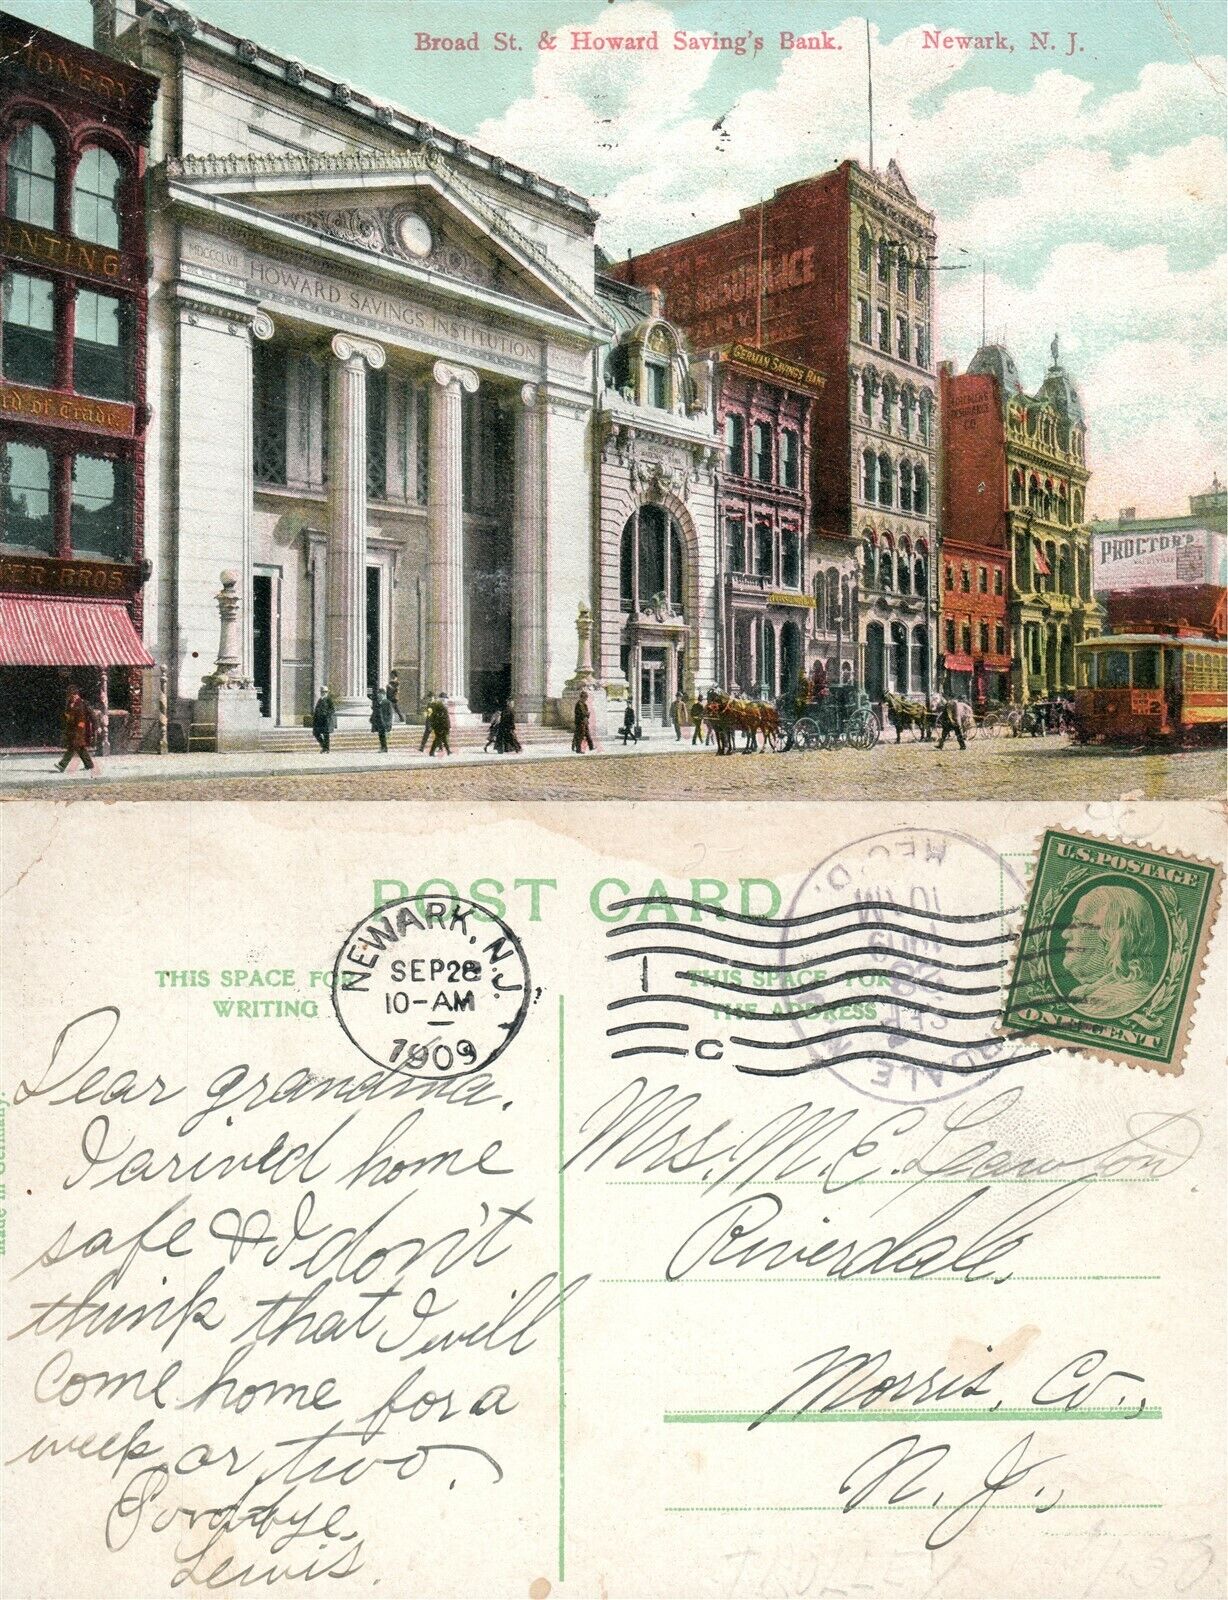 Broad St. & Howard Saving's Bank. Newark, N. J.
MDCCCLVII
HOWARD SAVINGS INSTITUTION
INSURANCE
GERMAN SAVING'S BANK
INSURANCE
CO.
PROCTOR'S
TIONERY
INTING
rd of Trade
ER BROS.
2
POST CARD
THIS SPACE FOR
WRITING
THIS SPACE FOR
THE ADDRESS
NEWARK, N.J.
SEP 28
10-AM
1909
1
C
RDALE
SEP
28
1909
10 AM
REC'D.
U.S. POSTAGE
ONE CENT
Made in Germany.
Dear grandma.
I arived home
safe & I don't
think that I will
come home for a
week or two.
Goodbye,
Lewis.
Mrs. M. E. Lawton.
Riverdale,
Morris, Co.,
N. J.,
TROLLEY